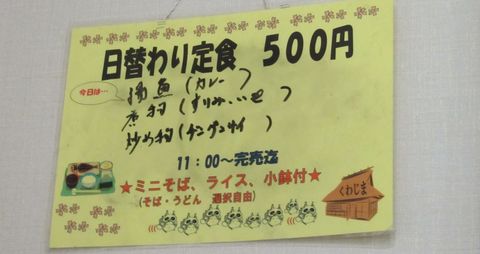 日替わり定食 500円
今日は…
揚魚(カレー)
煮物(すりみ、いも)
炒め物(チンゲンサイ)
11:00~完売迄
★ミニそば、ライス、小鉢付★
(そば・うどん 選択自由)
くわじま